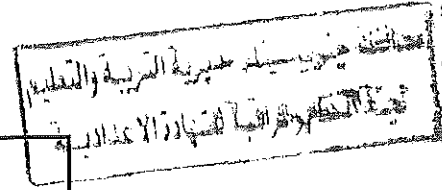 محافظة جنوب سيناء مديرية التربية والتعليم
لجنة النظام والمراقبة للشهادة الاعدادية